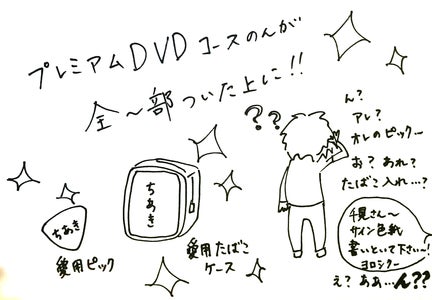 プレミアムDVDコースのんが
全〜部ついた上に!!
??
ん?
アレ?
オレのピック…
お?あれ?
たばこ入れ…?
千晃さん〜
サイン色紙
書いといて下さい〜!
ヨロシクー
え?ああ…ん??
ちあき
愛用ピック
ちあき
愛用たばこ
ケース